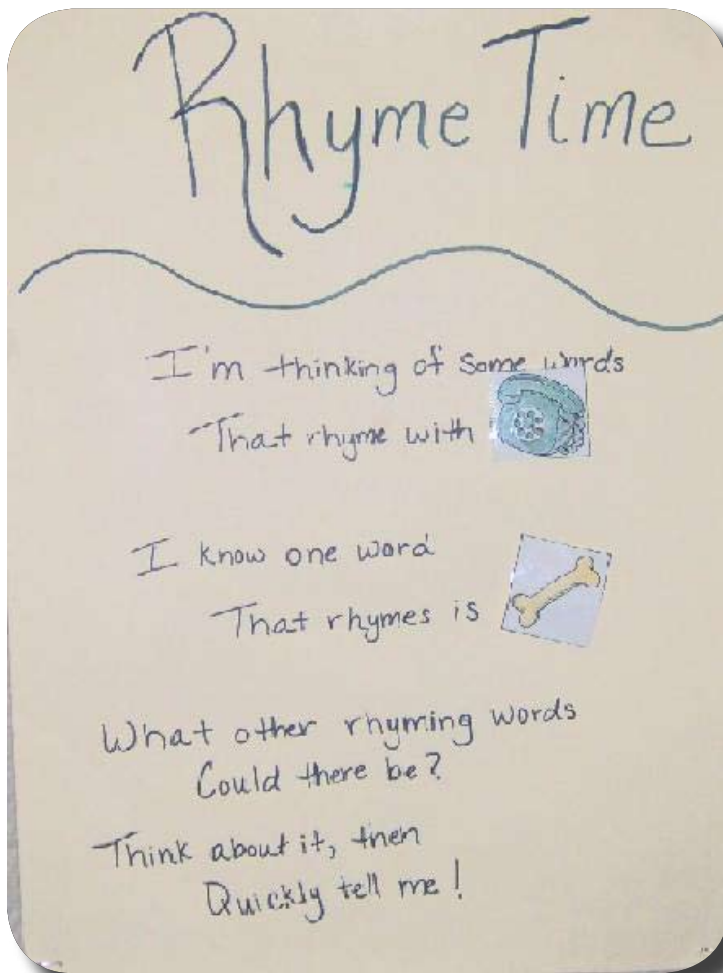 Rhyme Time
I'm thinking of some words
That rhyme with
I know one word
That rhymes is
What other rhyming words
Could there be?
Think about it, then
Quickly tell me!